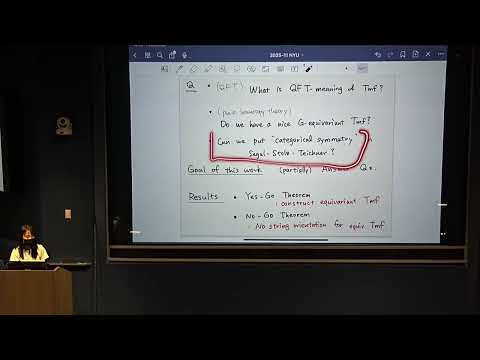 2025-11 NYU
Q. • (QFT) What is QFT-meaning of Tmf?
• (pure homotopy theory)
Do we have a nice G-equivariant Tmf?
Can we put "categorical symmetry"
Segal-Stolz-Teichner?
Goal of this work (partially) Answer Qs.
Results • Yes-Go Theorem
: construct equivariant Tmf
• No-Go Theorem
: No string orientation for equiv Tmf